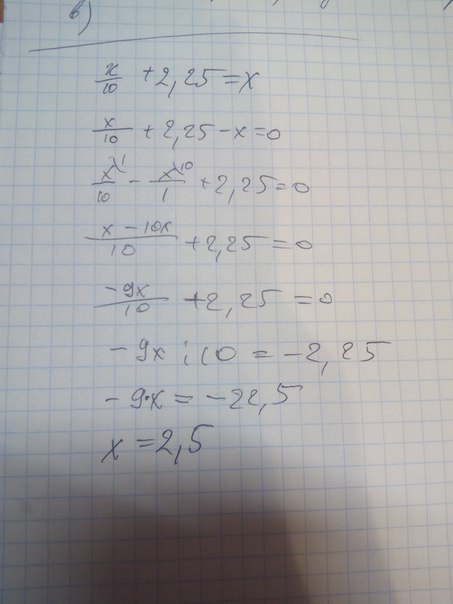 в)
x/10 + 2,25 = x
x/10 + 2,25 - x = 0
x\1/10 - x\10/1 + 2,25 = 0
x - 10x/10 + 2,25 = 0
-9x/10 + 2,25 = 0
-9x : 10 = -2,25
-9·x = -22,5
x = 2,5